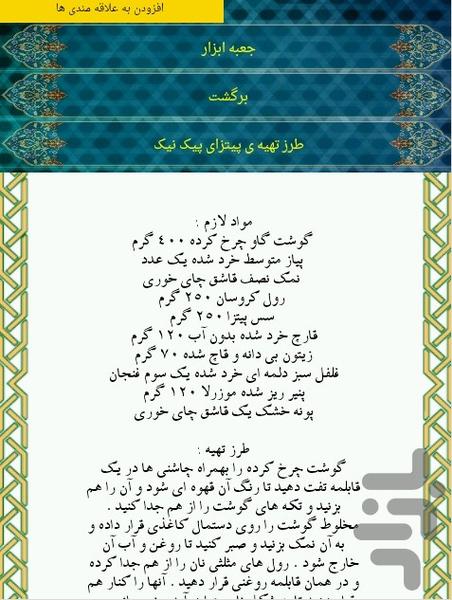 افزودن به علاقه مندی ها
جعبه ابزار
برگشت
طرز تهیه ی پیتزای پیک نیک
مواد لازم :
گوشت گاو چرخ کرده ۴۰۰ گرم
پیاز متوسط خرد شده یک عدد
نمک نصف قاشق چای خوری
رول کروسان ۲۵۰ گرم
سس پیتزا ۲۵۰ گرم
قارچ خرد شده بدون آب ۱۲۰ گرم
زیتون بی دانه و قاچ شده ۷۰ گرم
فلفل سبز دلمه ای خرد شده یک سوم فنجان
پنیر ریز شده موزرلا ۱۲۰ گرم
پونه خشک یک قاشق چای خوری
طرز تهیه :
گوشت چرخ کرده را بهمراه چاشنی ها در یک
قابلمه تفت دهید تا رنگ آن قهوه ای شود و آن را هم
بزنید و تکه های گوشت را از هم جدا کنید .
مخلوط گوشت را روی دستمال کاغذی قرار داده و
به آن نمک بزنید و صبر کنید تا روغن و آب آن
خارج شود . رول های مثلثی نان را از هم جدا کرده
و در همان قابلمه روغنی قرار دهید . آنها را کنار هم
بازار